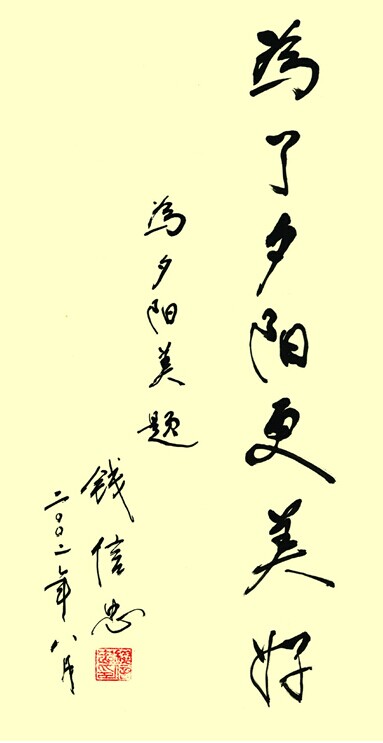 為了夕阳更美好
為夕阳美题
钱信忠
二〇〇二年八月